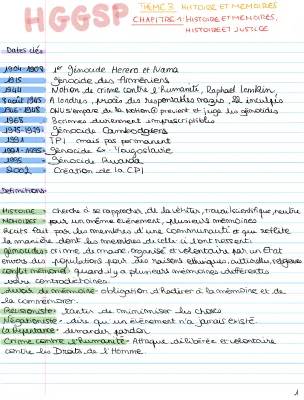 HGGSP
THÈME 3 HISTOIRE ET MÉMOIRES
CHAPITRE 1: HISTOIRE ET MÉMOIRES,
HISTOIRE ET JUSTICE
Dates clés
1904-1908 1er Génocide Herero et Nama
1915 Génocide des Arméniens
1944 Notion de crime contre l'humanité, Raphael Lemkin
8 août 1945 A londres, procès des responsables nazis, 22 inculpés
1946-1948 ONU s'empare de la notion prévient et juge les génocides
1968 Crimes durement imprescriptibles
1975-1979 Génocide Cambodgiens
1991 TPI mais pas permanent
1991-1995 Génocide Ex-Yougoslavie
1995 Génocide Rwanda
2002 Création de la CPI
Définitions
HISTOIRE = cherche à se rapprocher de la vérité, travail scientifique, neutre
MÉMOIRES = pour un même évènement, plusieurs mémoires
Récits fait par les membres d'une communauté et qui reflète
la manière dont les membres de celle ci l'ont ressenti.
génocide = crime de masse organisé et volontaire par un État
envers des populations pour des raisons ethniques, culturelles, religieuses
conflit mémoriel = quand il y a plusieurs mémoires différentes
voire contradictoires.
devoir de mémoire = obligation d'honorer à la mémoire et de
la commémorer.
Révisionniste = tenter de minimiser les choses
Négationniste = dire qu'un évènement n'a jamais existé.
La Repentance = demander pardon
Crime contre l'humanité = Attaque délibérée et volontaire
contre les Droits de l'Homme.
1